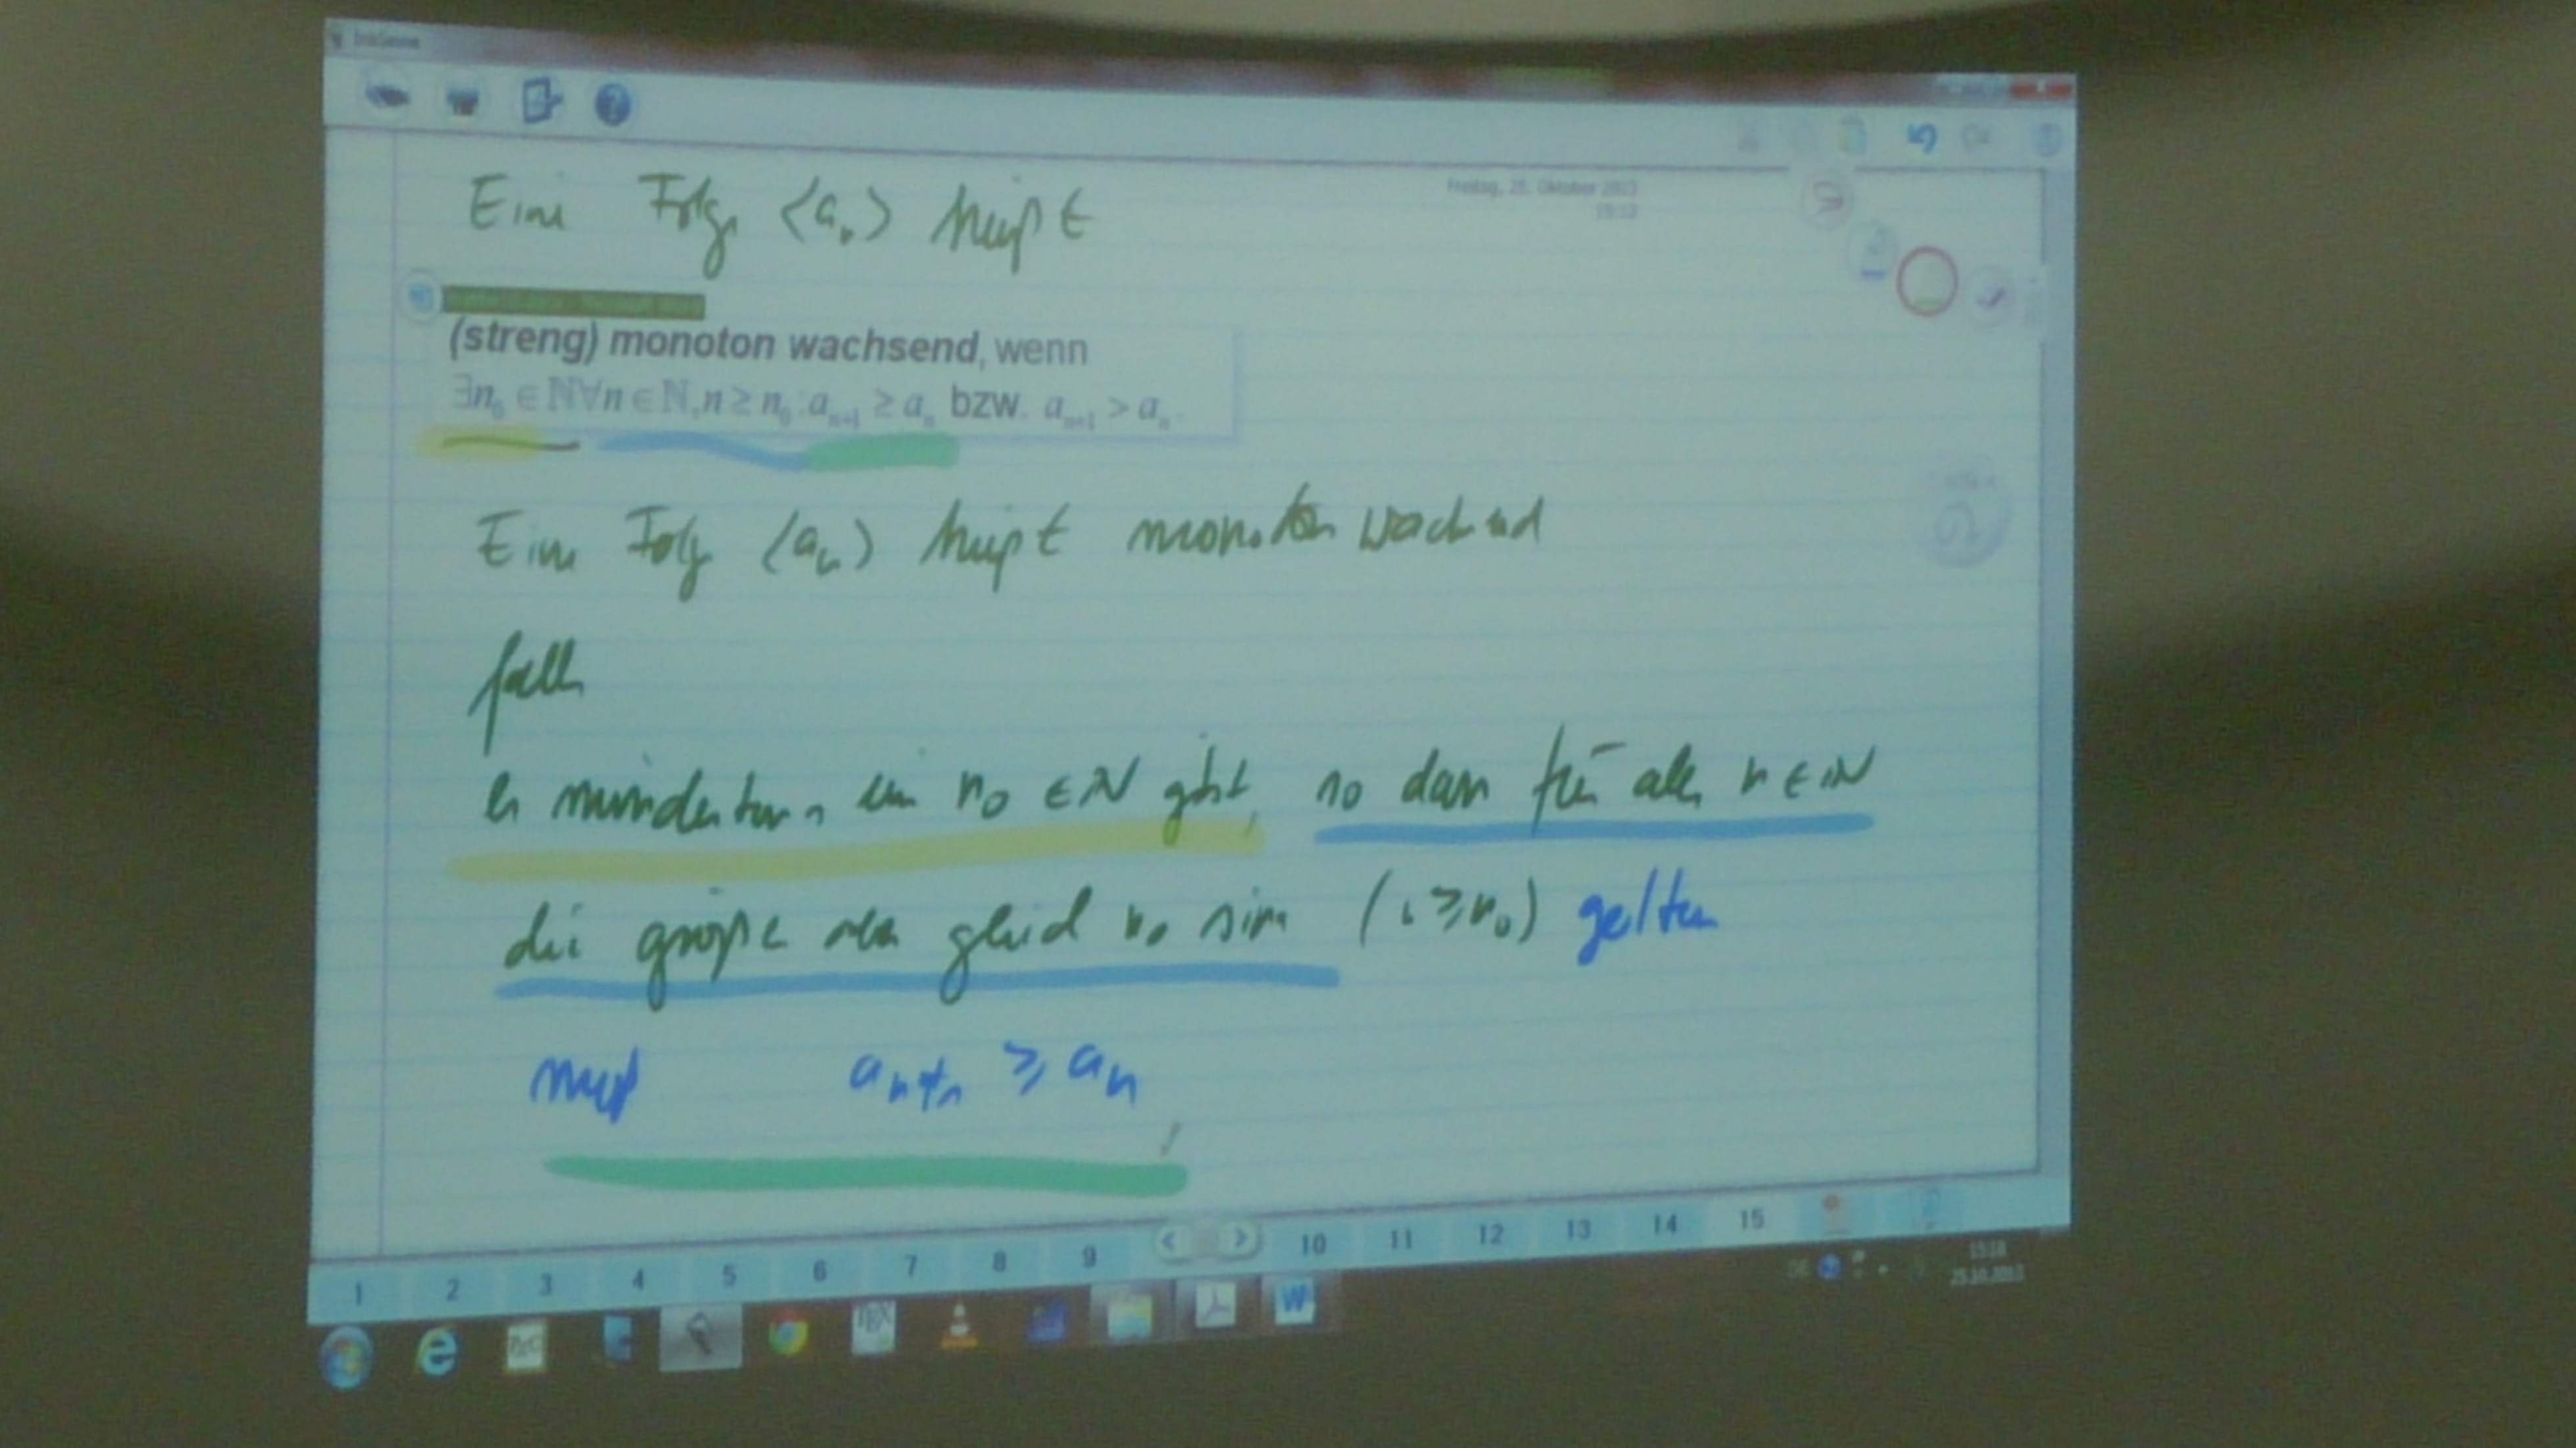 InkSeine
Freitag, 25. Oktober 2013
15:12
Eine Folge ⟨aₙ⟩ heißt
(streng) monoton wachsend, wenn
∃n₀ ∈ ℕ∀n ∈ ℕ, n ≥ n₀ : aₙ₊₁ ≥ aₙ bzw. aₙ₊₁ > aₙ.
Eine Folge ⟨aₙ⟩ heißt monoton wachsend
falls
es mindestens ein n₀ ∈ ℕ gibt, so dass für alle n ∈ ℕ
die größer oder gleich n₀ sind (n ≥ n₀) gelten
muß aₙ₊₁ ≥ aₙ
1 2 3 4 5 6 7 8 9 < > 10 11 12 13 14 15
DE
25.10.2013